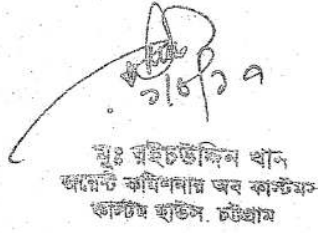 ১/৮/১৭
মুঃ রইচউদ্দিন খান
জয়েন্ট কমিশনার অব কাস্টমস
কাস্টম হাউস, চট্টগ্রাম